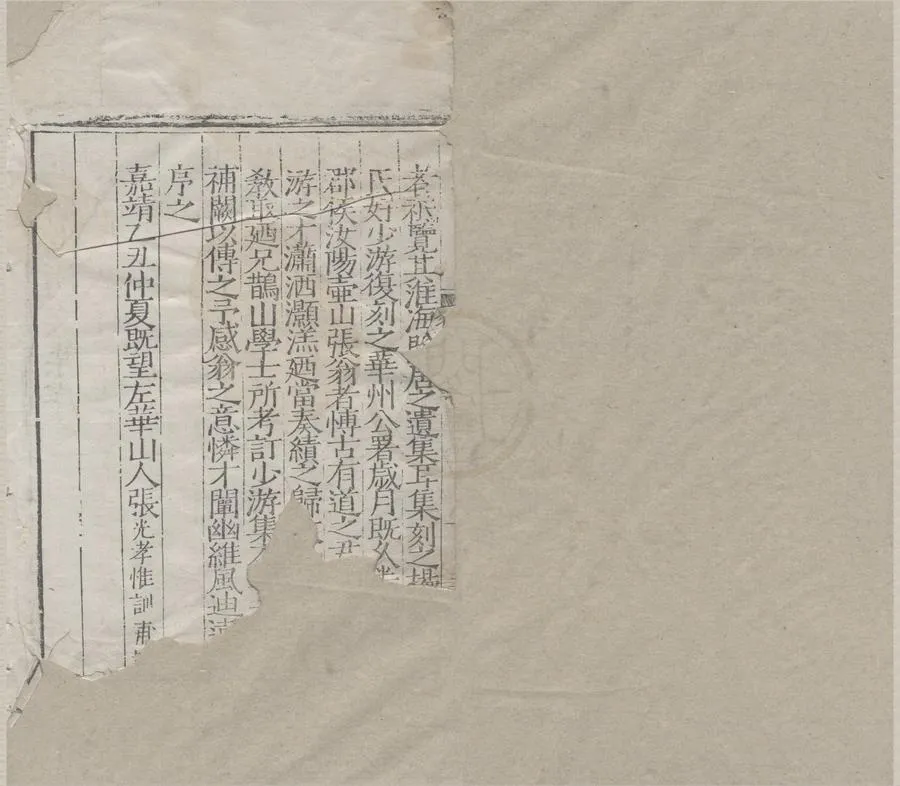 者祗覽其淮海居之遺集耳集刻之揚
氏好少游復刻之華州公署歲月既久
郡侯汝陽壺山張翁者愽古有道之
游之才瀟洒灝溔廼當奏績之歸
敎取廼兄鵲山學士所考訂少游集
補闕以傳之予感翁之意憐才闡幽維風迪
序之
嘉靖乙丑仲夏既望左華山人張光孝惟訓甫